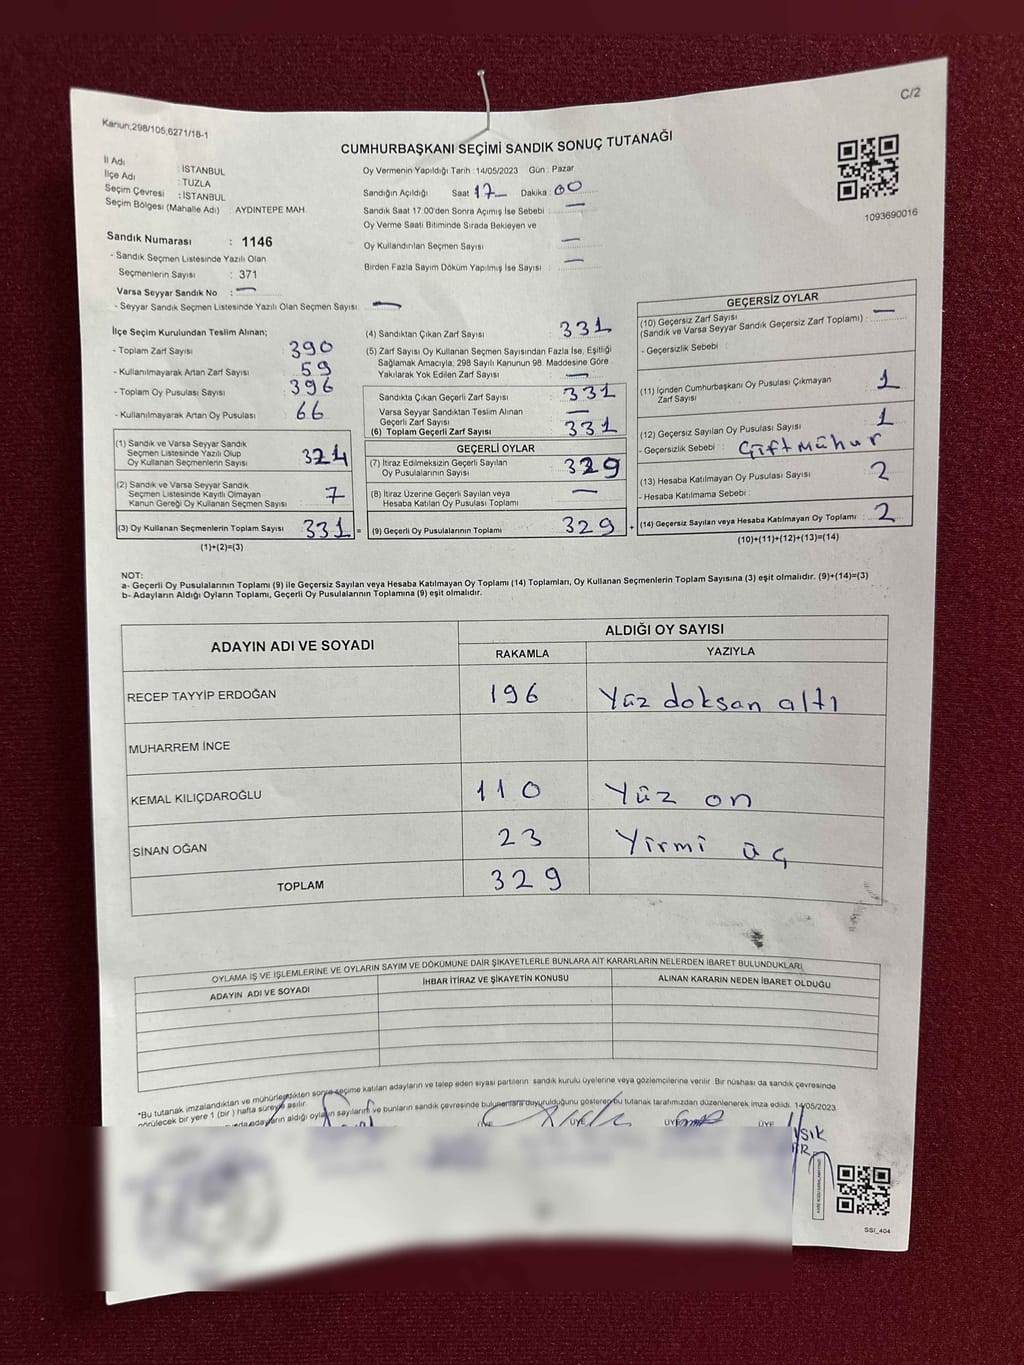 C/2
Kanun:298/105,6271/18-1
CUMHURBAŞKANI SEÇİMİ SANDIK SONUÇ TUTANAĞI
İl Adı : İSTANBUL
İlçe Adı : TUZLA
Seçim Çevresi : İSTANBUL
Seçim Bölgesi (Mahalle Adı) : AYDINTEPE MAH.
Oy Vermenin Yapıldığı Tarih : 14/05/2023 Gün : Pazar
Sandığın Açıldığı Saat 17 Dakika : 00
Sandık Saat 17.00'den Sonra Açımış İse Sebebi : —
Oy Verme Saati Bitiminde Sırada Bekleyen ve
Oy Kullandırılan Seçmen Sayısı —
Birden Fazla Sayım Döküm Yapılmış İse Sayısı : —
1093690016
Sandık Numarası : 1146
- Sandık Seçmen Listesinde Yazılı Olan
Seçmenlerin Sayısı : 371
Varsa Seyyar Sandık No : —
- Seyyar Sandık Seçmen Listesinde Yazılı Olan Seçmen Sayısı: —
İlçe Seçim Kurulundan Teslim Alınan;
- Toplam Zarf Sayısı : 390
- Kullanılmayarak Artan Zarf Sayısı : 59
- Toplam Oy Pusulası Sayısı : 396
- Kullanılmayarak Artan Oy Pusulası : 66
(1) Sandık ve Varsa Seyyar Sandık
Seçmen Listesinde Yazılı Olup
Oy Kullanan Seçmenlerin Sayısı 324
(2) Sandık ve Varsa Seyyar Sandık
Seçmen Listesinde Kayıtlı Olmayan
Kanun Gereği Oy Kullanan Seçmen Sayısı : 7
(3) Oy Kullanan Seçmenlerin Toplam Sayısı 331 =
(1)+(2)=(3)
(4) Sandıktan Çıkan Zarf Sayısı 331
(5) Zarf Sayısı Oy Kullanan Seçmen Sayısından Fazla İse, Eşitliği
Sağlamak Amacıyla; 298 Sayılı Kanunun 98. Maddesine Göre
Yakılarak Yok Edilen Zarf Sayısı —
Sandıkta Çıkan Geçerli Zarf Sayısı 331
Varsa Seyyar Sandıktan Teslim Alınan
Geçerli Zarf Sayısı —
(6) Toplam Geçerli Zarf Sayısı 331
GEÇERLİ OYLAR
(7) İtiraz Edilmeksizin Geçerli Sayılan
Oy Pusulalarının Sayısı 329
(8) İtiraz Üzerine Geçerli Sayılan veya
Hesaba Katılan Oy Pusulası Toplamı —
(9) Geçerli Oy Pusulalarının Toplamı 329 +
GEÇERSİZ OYLAR
(10) Geçersiz Zarf Sayısı
(Sandık ve Varsa Seyyar Sandık Geçersiz Zarf Toplamı) : —
- Geçersizlik Sebebi :
(11) İçinden Cumhurbaşkanı Oy Pusulası Çıkmayan
Zarf Sayısı 1
(12) Geçersiz Sayılan Oy Pusulası Sayısı 1
- Geçersizlik Sebebi : Çift mühür
(13) Hesaba Katılmayan Oy Pusulası Sayısı 2
- Hesaba Katılmama Sebebi :
(14) Geçersiz Sayılan veya Hesaba Katılmayan Oy Toplamı 2
(10)+(11)+(12)+(13)=(14)
NOT:
a- Geçerli Oy Pusulalarının Toplamı (9) ile Geçersiz Sayılan veya Hesaba Katılmayan Oy Toplamı (14) Toplamları, Oy Kullanan Seçmenlerin Toplam Sayısına (3) eşit olmalıdır. (9)+(14)=(3)
b- Adayların Aldığı Oyların Toplamı, Geçerli Oy Pusulalarının Toplamına (9) eşit olmalıdır.
ADAYIN ADI VE SOYADI
ALDIĞI OY SAYISI
RAKAMLA YAZIYLA
RECEP TAYYİP ERDOĞAN 196 Yüz doksan altı
MUHARREM İNCE
KEMAL KILIÇDAROĞLU 110 Yüz on
SİNAN OĞAN 23 Yirmi üç
TOPLAM 329
OYLAMA İŞ VE İŞLEMLERİNE VE OYLARIN SAYIM VE DÖKÜMÜNE DAİR ŞİKAYETLERLE BUNLARA AİT KARARLARIN NELERDEN İBARET BULUNDUKLARI
ADAYIN ADI VE SOYADI İHBAR İTİRAZ VE ŞİKAYETİN KONUSU ALINAN KARARIN NEDEN İBARET OLDUĞU
*Bu tutanak imzalandıktan ve mühürlendikten sonra seçime katılan adayların ve talep eden siyasi partilerin sandık kurulu üyelerine veya gözlemcilerine verilir. Bir nüshası da sandık çevresinde
görülecek bir yere 1 (bir) hafta süreyle asılır.
adayların aldığı oyların sayılarını ve bunların sandık çevresinde bulunanlara duyurulduğunu gösteren bu tutanak tarafımızdan düzenlenerek imza edildi. 14/05/2023
ÜYE ÜYE ÜYE ÜYE
SSI_404